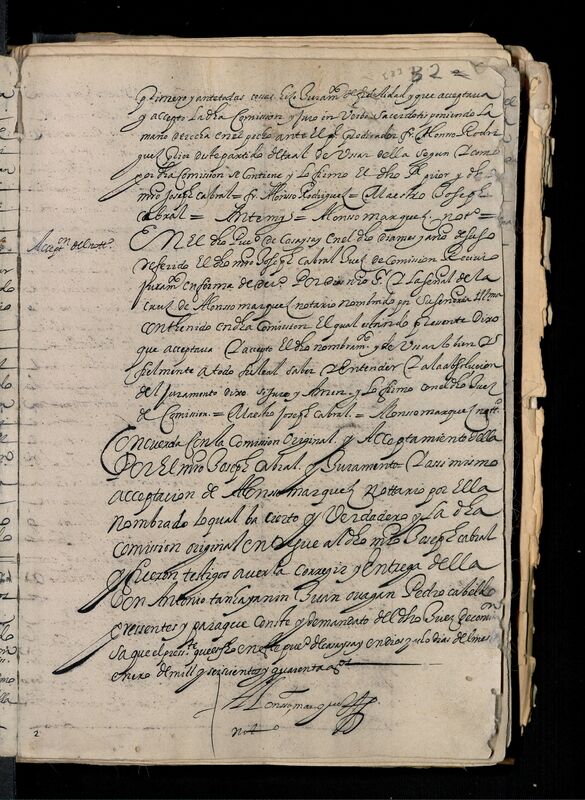 32
y Primero y ante todas cosas hiço Juram.to de fidelidad y que acceptava
y accepto La dha Comission y Juro in Verbo Sacerdotis poniendo La
mano derecha en el pecho ante el P.e Predicador Fr. Alonso Rodri
guez de Usar della segun Y como
por dha Comission se Contiene y Lo firmo El dho Prior y dho
mro Joseph Cabral = Fr. Alonso Rodriguez = Maestro Joseph
Cabral = Ante my = Alonso marquez not.o =
Accept.on del nott.o
EN El dho Pu.o De Cosaysay en el dho dia mes y año desuso
referido El dho mro Joseph Cabral Juez de Comission Recivio
juram.to en forma de der.o Por dios nro S.r Y La señal de la
Cruz de Alonso marquez notario nombrado por Su Señoria Ill.ma
Conthenido en dha Comission El qual estando pressente Dixo
que acceptava Y accepto El dho nombram.to y de Usar lo bien Y
fielmente a todo su leal saber Y entender Y a la absolucion
del Juramento dixo si Juro y Amen y Lo firmo con el dho Juez
de Comission = Maestro Joseph Cabral = Alonso marquez nott.o
Concuerda Con la Comission Original y Acceptamiento della
Por El mro Joseph Cabral y Juramento Y assimismo
acceptacion de Alonso marquez Nottario por Ella
nombrado lo qual ba cierto y Verdadero y La dha
comission original entregue al dho mro Joseph cabral
y fueron testigos a ver la corregir y entrega della
Don Antonio Juan Pedro cabello
pressentes y para que conste y de mandato del dho Juez de com.on
sa que el press.te que es fho en este pue.o de cosaysay en dies y ocho dias del mes
enero de mill y seiscientos y quarenta
Alonso marquez
not.o
2